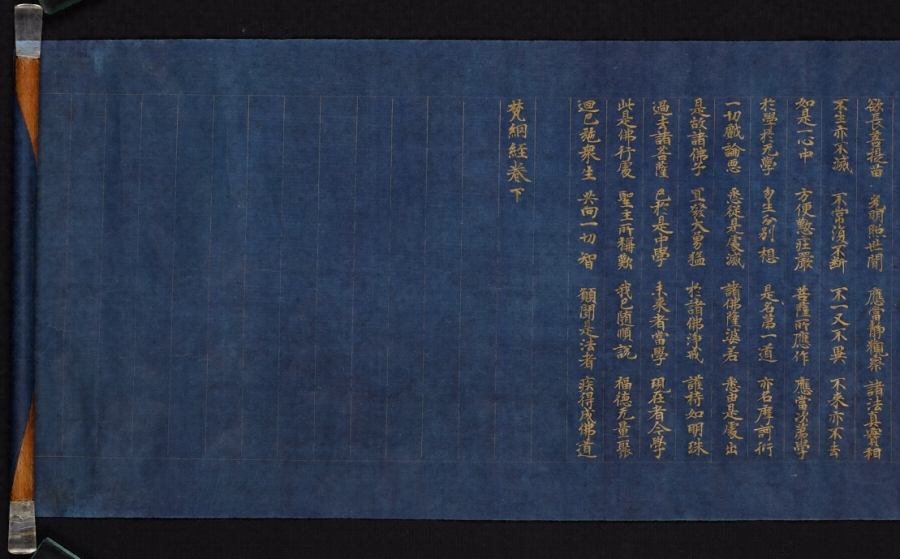 欲長菩提苗 光明照世間 應當靜觀察 諸法真實相
不生亦不滅 不常復不斷 不一又不異 不來亦不去
如是一心中 方便懃莊嚴 菩薩所應作 應當次第學
於學於无學 勿生分別想 是名第一道 亦名摩訶衍
一切戲論惡 悉從是處滅 諸佛薩婆若 悉由是處出
是故諸佛子 宜發大勇猛 於諸佛淨戒 護持如明珠
過去諸菩薩 已於是中學 未來者當學 現在者今學
此是佛行處 聖主所稱歎 我已隨順說 福德无量聚
迴已施衆生 共向一切智 願聞是法者 疾得成佛道
梵網經卷下